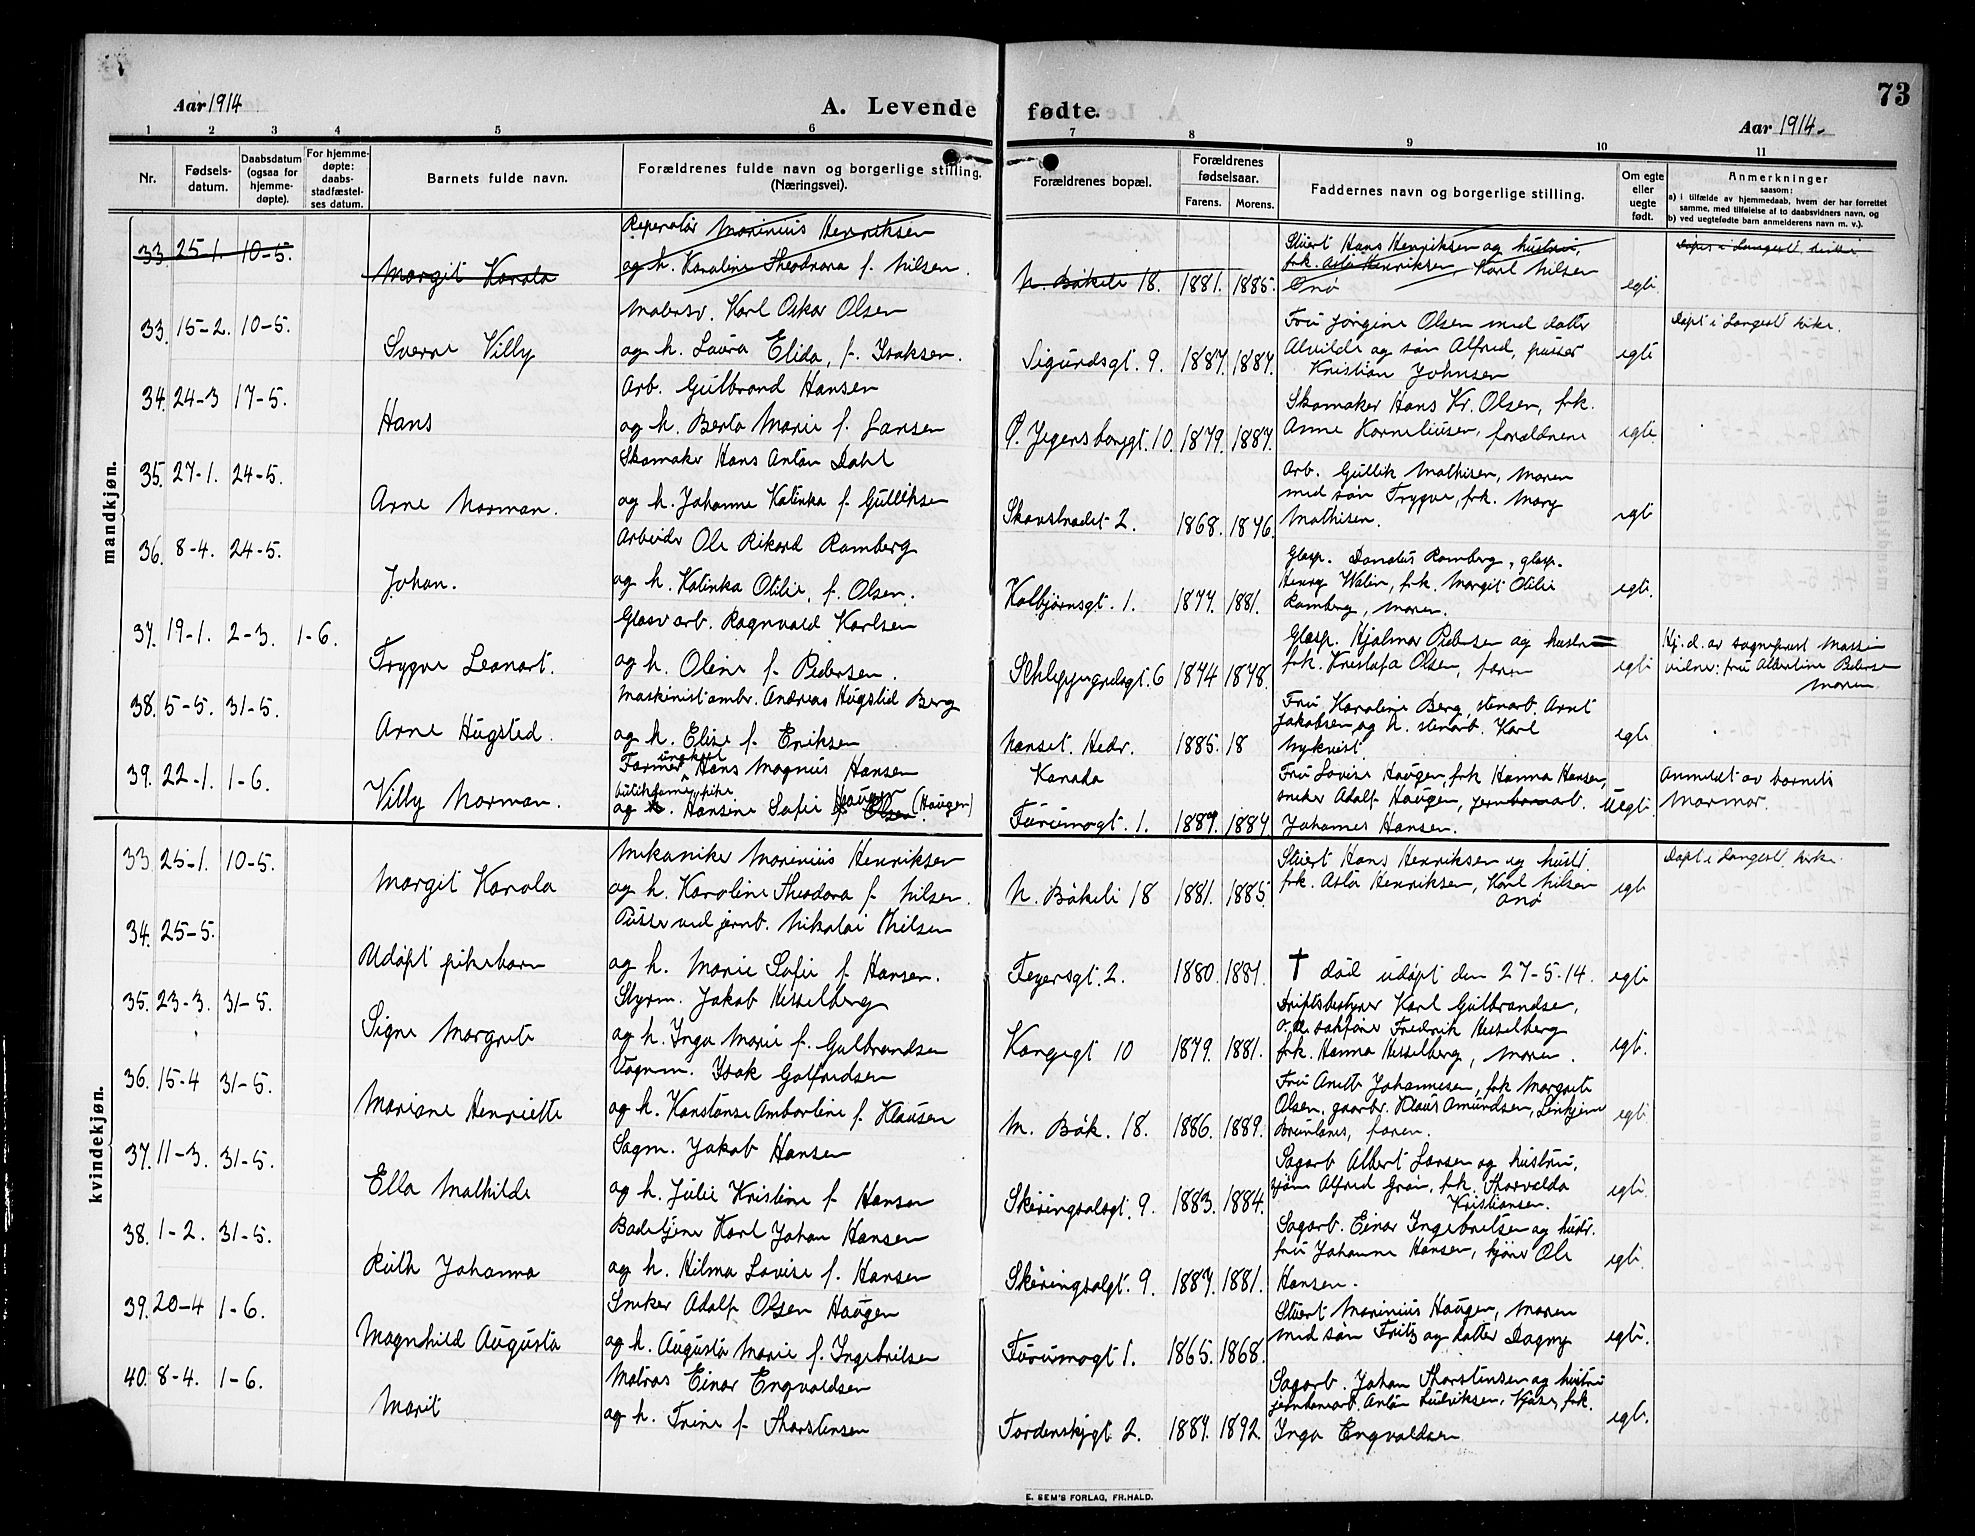 Aar 1914
A. Levende fødte.
Aar 1914.
73
1 2 3 4 5 6 7 8 9 10 11
Nr.
Fødsels-
datum.
Daabsdatum
(ogsaa for
hjemme-
døpte).
For hjemme-
døpte:
daabs-
stadfæstel-
ses datum.
Barnets fulde navn.
Forældrenes fulde navn og borgerlige stilling.
(Næringsvei).
Forældrenes bopæl.
Forældrenes
fødselsaar.
Farens. Morens.
Faddernes navn og borgerlige stilling.
Om egte
eller
uegte
født.
Anmerkninger
saasom:
a) i tilfælde av hjemmedaab, hvem der har forrettet
samme, med tilføielse af to daabsvidners navn, og
b) ved uegtefødte barn anmelderens navn m. v.).
mandkjøn.
33. 25-1. 10-5.
Margit Karola
Reperatør Marinius Henriksen
og h. Karoline Theodora f. Nilsen.
N. Bøkeli 18. 1881. 1885.
Stuert Hans Henriksen og hustru,
frk. Asta Henriksen, Karl Nilsen
Onø
egte.
Døpt i Langest. kirke
33. 15-2. 10-5.
Sverre Villy
Malersv. Karl Oskar Olsen
og h. Laura Elida, f. Isaksen.
Sigurdsgt. 9. 1887. 1887.
Fru Jørgine Olsen med datter
Alvilde og søn Alfred, pusser
Kristian Johnsen
egte
Døpt i Langest. kirke.
34. 24-3 17-5.
Hans
Arb. Gulbrand Hansen
og h. Berta Marie f. Larsen
Ø. Jegersborggt. 10 1879. 1887.
Skomaker Hans Kr. Olsen, frk.
Anne Korneliusen, forældrene
egte
35. 27-1. 24-5.
Arne Norman.
Skomaker Hans Anton Dahl
og h. Johanne Katinka f. Gulliksen
Skavstradet 2. 1868. 1876.
Arb. Gullik Mathisen, moren
med søn Trygve, frk. Mary
Mathisen.
egte
36. 8-4. 24-5.
Johan.
Arbeider Ole Rikard Ramberg
og h. Katinka Otilie, f. Olsen.
Kolbjørnsgt. 1. 1877. 1881.
Glasp. Donatus Ramberg, glasp.
Henry Walin, frk. Margit Otilie
Ramberg, moren.
egte.
37. 19-1. 2-3. 1-6.
Trygve Leonart.
Glasv. arb. Ragnvald Karlsen
og h. Oline f. Pedersen.
Schleppegrelsgt. 6 1874 1878.
Glasp. Hjalmar Pedersen og hustru
frk. Kristofa Olsen, faren
egte
Hj. d. av sogneprest Massie
vidner: fru Albertine Pedersen
moren.
38. 5-5. 31-5.
Arne Hugsted.
Maskinistambr. Andreas Hugstid Berg
og h. Elise f. Eriksen
Nanset. Hedr. 1885. 18
Fru Karoline Berg, stenarb. Arnt
Jakobsen og h. stenarb. Karl
Nykvist
egte
39. 22-1. 1-6.
Villy Norman.
ungkarl
Farmer Hans Magnus Hansen
butikdame, pike
og h. Hansine Sofie Haugen f. Olsen (Haugen)
Kanada
Furumogt. 1. 1889. 1887
Fru Lovise Haugen, frk Hanna Hansen,
sneker Adolf Haugen, jernbanearb.
Johannes Hansen.
Uegte.
Anmeldt av barnets
mormor.
kvindekjøn.
33 25-1. 10-5.
Margit Karola
Mekaniker Marinius Henriksen
og h. Karoline Theodora f. Nilsen.
N. Bøkeli 18 1881. 1885.
Stuert Hans Henriksen og hustr.
frk. Asta Henriksen, Karl Nilsen
Onø
egte
Døpt i Langest. kirke.
34. 25-5.
Udøpt pikebarn
Pusser ved jernb. Nikolai Nilsen
og h. Marie Sofie f. Hansen.
Feyersgt. 2. 1880. 1881.
† død udøpt den 27-5-14.
egte
35. 23-3. 31-5.
Signe Margrete
Styrm. Jakob Hesselberg
og h. Inga Marie f. Gulbrandsen
Kongegt 10 1879. 1881.
Driftsbestyrer Karl Gulbrandsen,
o.r. sakfører Fredrik Hesselberg
frk. Hanna Hesselberg, moren.
egte.
36. 15-4 31-5.
Mariane Henriette
Vognm. Isak Gotfredsen
og h. Konstanse Ambortine f. Klausen
M. Bøk. 18. 1886. 1889.
Fru Anette Johannesen, frk Margrete
Olsen, gaarbr. Klaus Amundsen,
Brunlanes, faren.
egte
37. 11-3. 31-5.
Ella Mathilde
Sagm. Jakob Hansen
og h. Julie Kristine f. Hansen
Skiringsalsgt. 9. 1883. 1884.
Sagarb Albert Larsen og hustru,
sjøm Alfred Grøn, frk. Thorvalda
Kristiansen.
egte.
38. 1-2. 31-5.
Ruth Johanna
Badetjener Karl Johan Hansen
og h. Hilma Lovise f. Hansen
Skiringsalgt. 9. 1887. 1881.
Sagarb. Einar Ingebretsen og hustr.
fru Johanne Hansen, kjører Ole
Hansen.
egte.
39. 20-4 1-6.
Magnhild Augusta
Sneker Adolf Olsen Haugen
og h. Augusta Marie f. Ingebretsen
Furumogt 1. 1865. 1868.
Stuert Marinius Haugen, moren
med søn Fritz og datter Dagny
egte.
40. 8-4. 1-6.
Marit
Matros Einar Engvaldsen
og h. Trine f. Thorstensen
Tordenskjgt 2. 1887. 1892.
Sagarb. Johan Thorstensen og hustru
jernbanearb. Anton Ludviksen, Kjøse, frk.
Inga Engvaldsen
egte.
E. SEM'S FORLAG, FR.HALD.